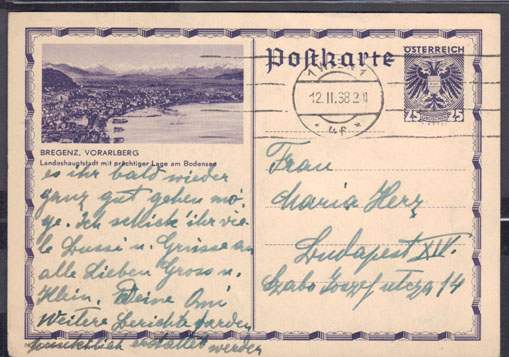 Postkarte
ÖSTERREICH
25 25
12.II.38
BREGENZ, VORARLBERG
Landeshauptstadt mit prächtiger Lage am Bodensee
es ihr bald wieder
ganz gut gehen mö-
ge. Ich schicke ihr vie-
le Bussi u. Grüsse an
alle Lieben Gross u.
Klein. Deine
Weitere Berichte
pünktlich erstattet werden
Frau
Maria Herz
Budapest XIV.
Szabo József utcza 14